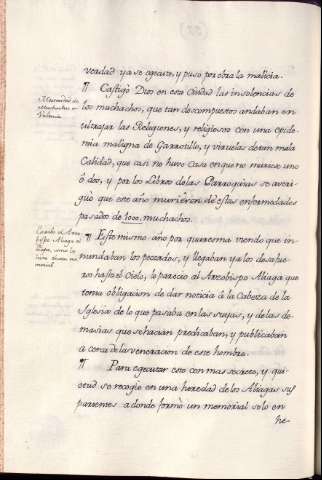 verdad ya se egecute, y puso por obra la malicia.
¶ Castigò Dios en esta Ciudad las insolencias de
los muchachos, que tan descompuestos andaban en
ultrajar las Religiones, y religiosos con una epide-
mia maligna de Garrotillo, y viruelas de tan mala
Calidad, que casi no huvo Casa en que no muriese uno
ò dos, y por los Libros de las Parroquias se averi-
guò que este año murieron de estas enfermedades
pasados de 1000. muchachos.
Mortandad de
muchachos en
Valencia
¶ Este mismo año por quaresma viendo que in-
mundaban los pecados, y llegaban ya los desafue-
ros hasta el Cielo, le pareciò al Arzobispo Aliaga que
tenia obligacion de dar noticia à la Cabeza de la
Iglesia de lo que pasaba en las suyas, y de las de-
masias que se hacian predicaban, y publicabàn
a cerca de la veneracion de este hombre.
¶ Para egecutar esto con mas secreto, y qui-
etud se recogiò en una heredad de los Aliagas sus
parientes a donde formò un memorial solo en
he-